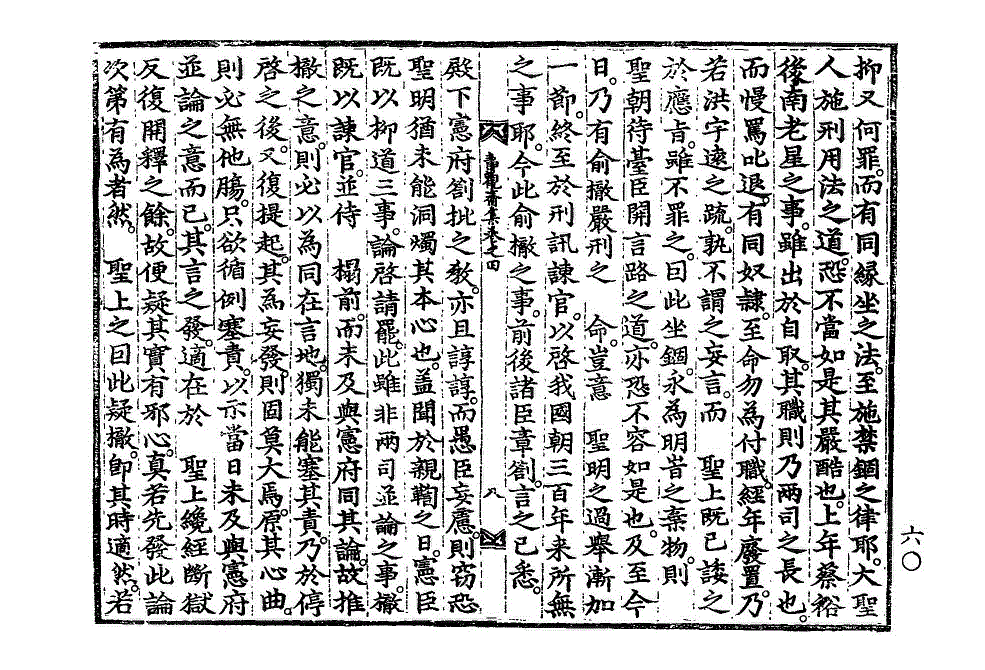 抑又何罪。而有同緣坐之法。至施禁錮之律耶。大聖
人施刑用法之道。恐不當如是其嚴酷也。上年蔡裕
後,南老星之事。雖出於自取。其職則乃兩司之長也。
而慢罵叱退。有同奴隷。至命勿為付職。經年廢置。乃
若洪宇遠之疏。孰不謂之妄言。而　聖上既已諉之
於應旨。雖不罪之。因此坐錮。永為明旹之棄物。則
聖朝待臺臣開言路之道。亦恐不容如是也。及至今
日。乃有俞㯙嚴刑之　命。豈意　聖明之過舉漸加
一節。終至於刑訊諫官。以啓我國朝三百年來所無
之事耶。今此俞㯙之事。前後諸臣章劄。言之已悉。
殿下憲府劄批之教。亦且諄諄。而愚臣妄慮。則竊恐
聖明猶未能洞燭其本心也。盖聞於親鞫之日。憲臣
既以抑道三事。論啓請罷。此雖非兩司並論之事。㯙
既以諫官。並待　榻前。而未及與憲府同其論。故推
㯙之意。則必以為同在言地。獨未能塞其責。乃於停
啓之後。又復提起。其為妄發。則固莫大焉。原其心曲。
則必無他膓。只欲循例塞責。以示當日未及與憲府
並論之意而已。其言之發。適在於　聖上纔經斷獄
反復開釋之餘。故便疑其實有邪心。真若先發此論
次第有為者然。　聖上之因此疑㯙。即其時適然。若
六〇
八